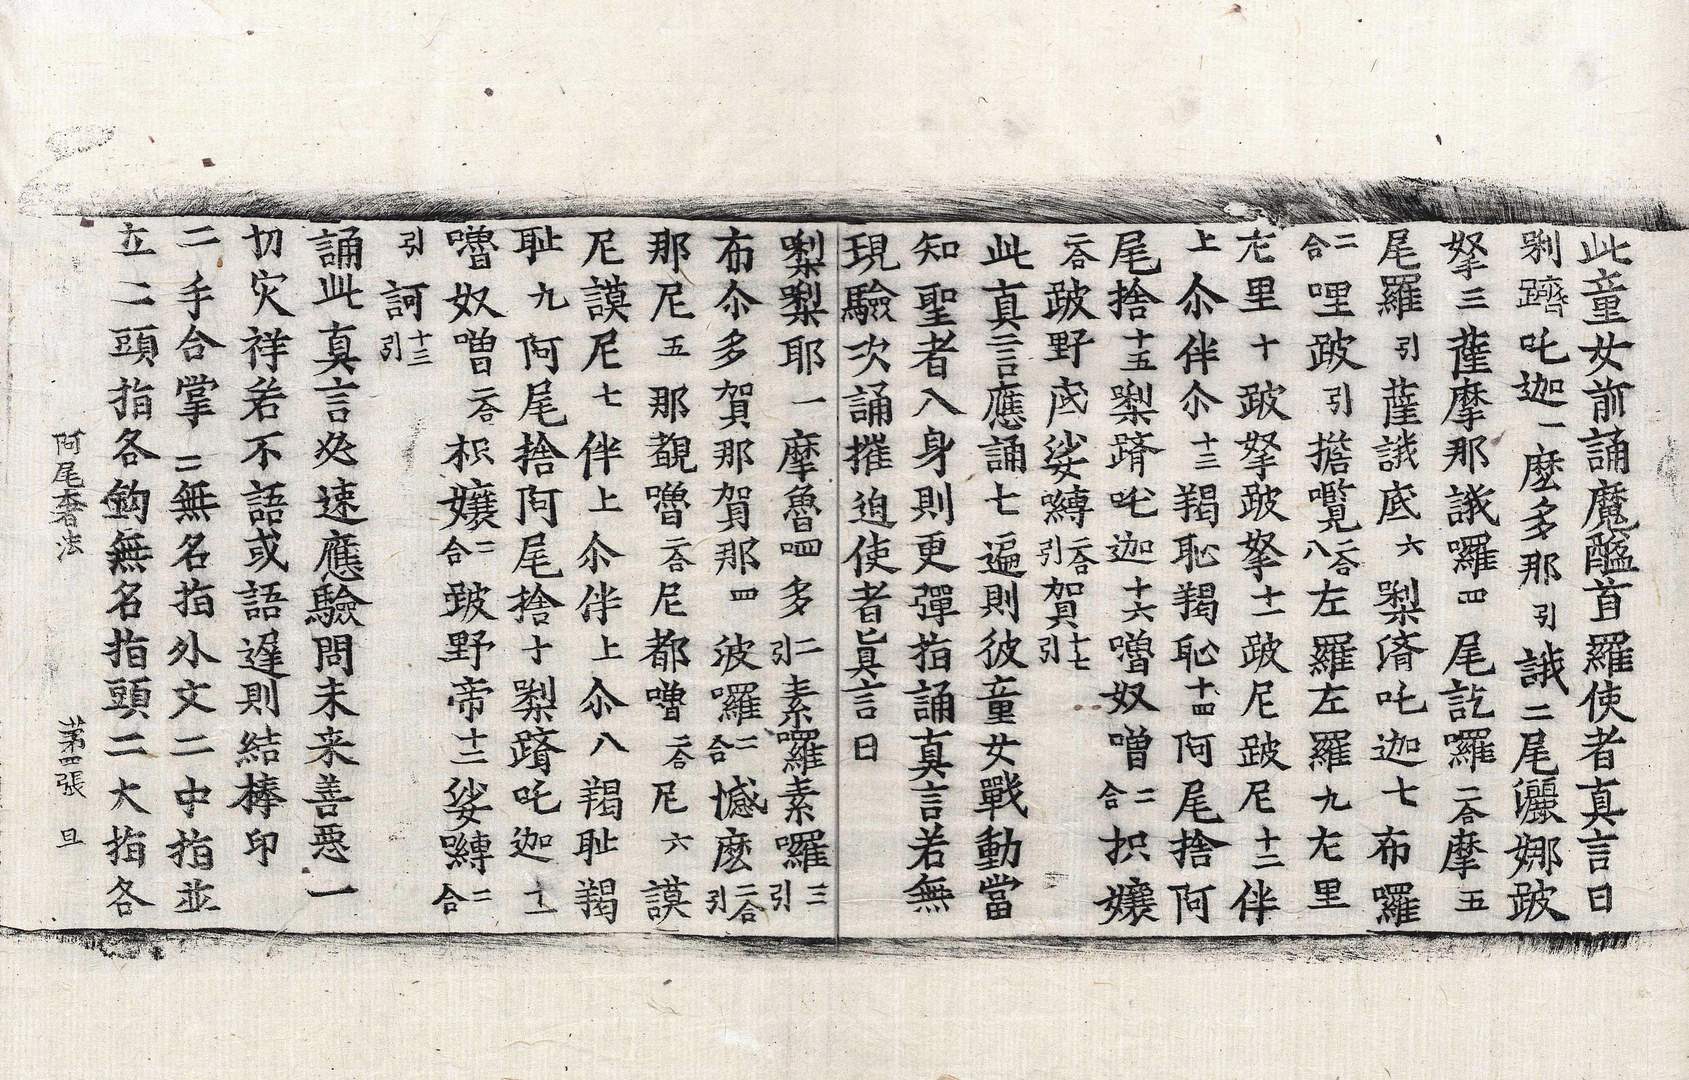 此童女前誦魔醯首羅使者真言曰
𠛴躋吒迦一麽多那引誐二尾灑娜跛
拏三薩摩那誐囉四尾訖囉二合摩五
尾羅引薩誐底六梨濟吒迦七布囉
二合哩跛引擔嚂二合八左羅左羅九尢里
尢里十跛拏跛拏十一跛尼跛尼十二伴
上尒伴尒十三羯恥羯恥十四阿尾捨阿
尾捨十五梨躋吒迦十六嚕奴嚕二合抧孃
二合跛野底娑嚩二合引賀引十七
此真言應誦七遍則彼童女戰動當
知聖者入身則更彈指誦真言若無
現驗次誦摧迫使者真言曰
梨梨耶一摩魯呬多二引素囉素囉三引
布尒多賀那賀那四波囉二合憾麽二合引
那尼五那覩嚕二合尼都嚕二合尼六謨
尼謨尼七伴上尒伴上尒八羯恥羯
恥九阿尾捨阿尾捨十梨躋吒迦十一
嚕奴嚕二合枳孃二合跛野帝十二娑嚩二合
引訶十三引
誦此真言必速應驗問未来善惡一
切灾祥若不語或語遲則結棒印
二手合掌二無名指外文二中指並
立二頭指各鈎無名指頭二大指各
阿尾奢法 第四張 旦